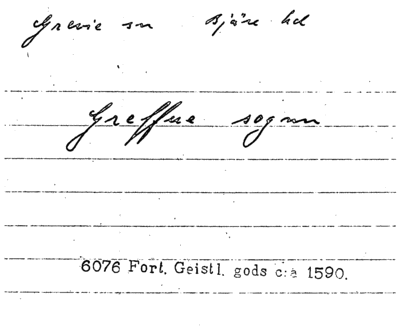 Grevie sn Bjäre hd
Greffue sognn
6076 Fort. Geistl. gods c:a 1590.